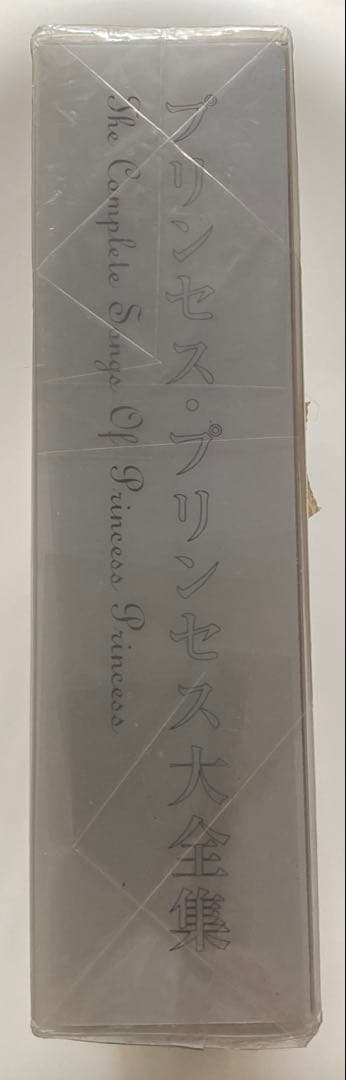 プリンセス・プリンセス大全集
The Complete Songs Of Princess Princess